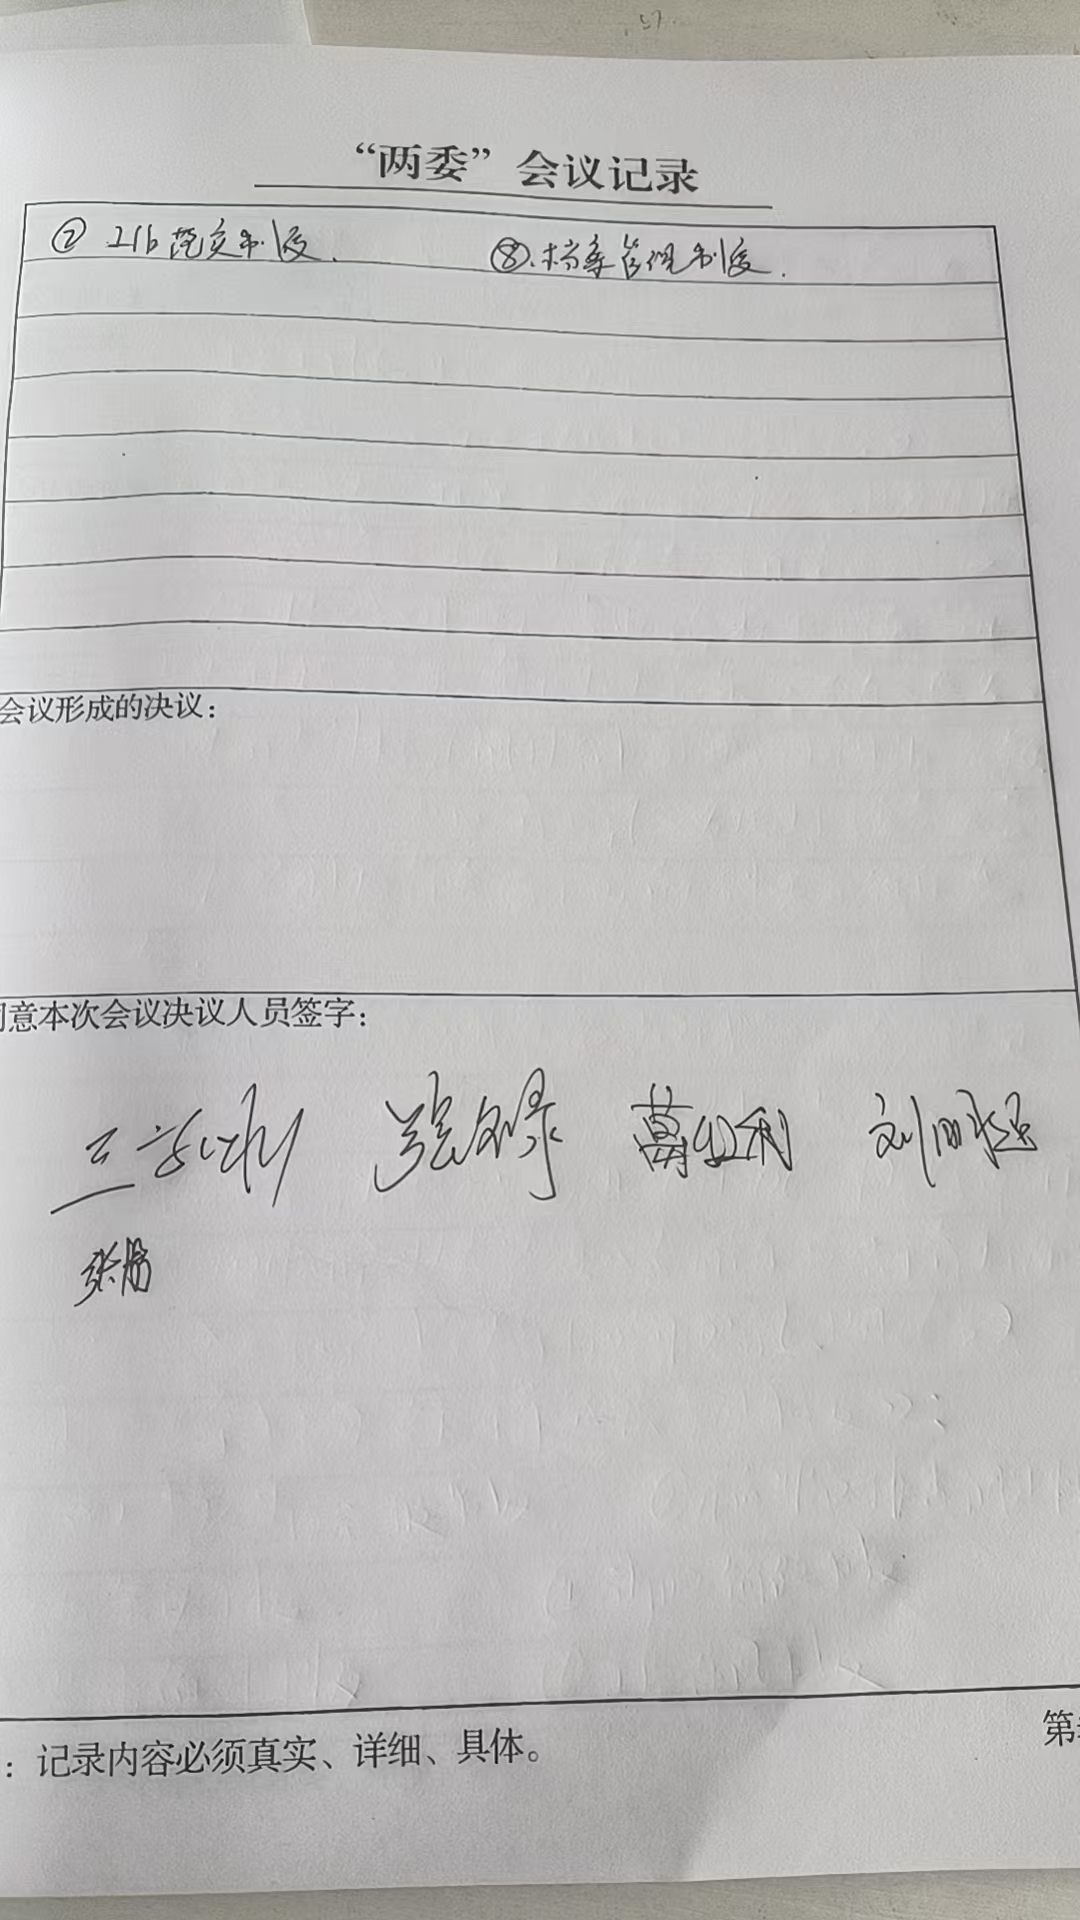 “两委”会议记录
⑦ 工作范交制度.  ⑧.档案管理制度.
会议形成的决议：
同意本次会议决议人员签字：
刘明超
张
：记录内容必须真实、详细、具体。
第